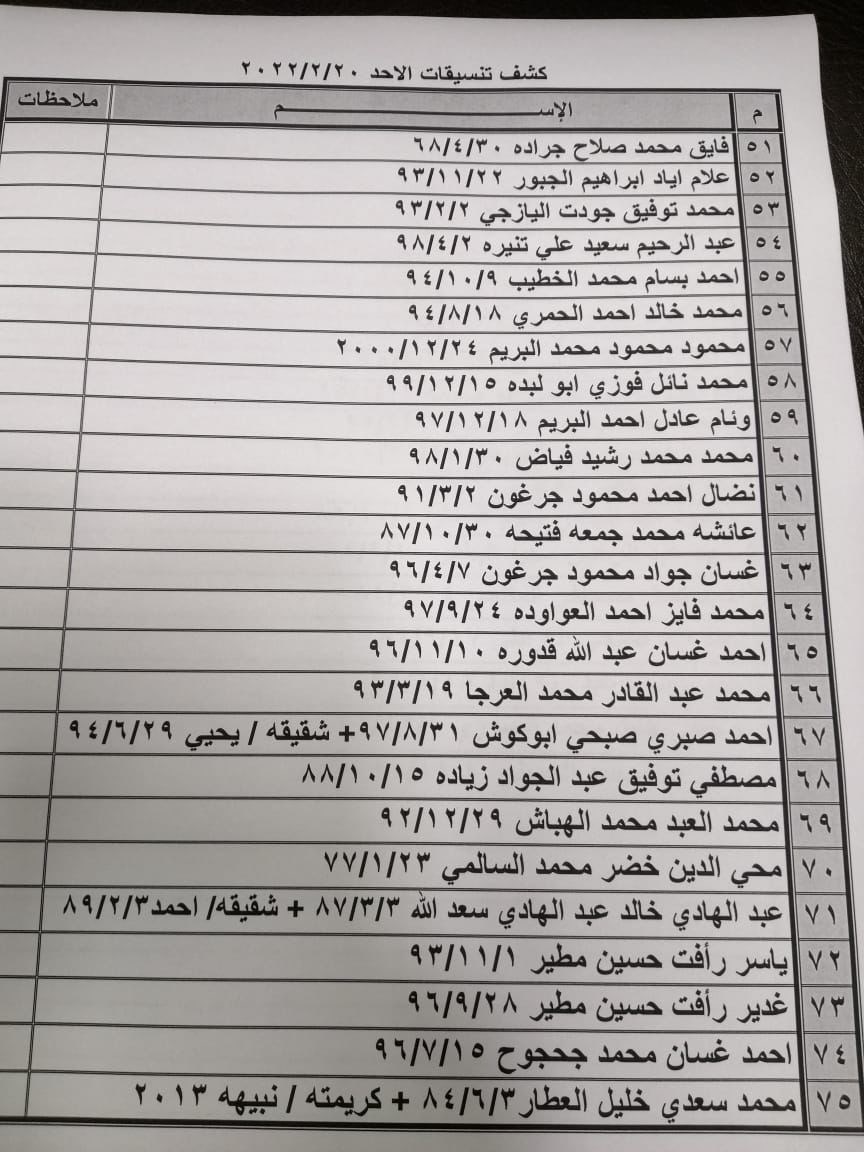 كشف تنسيقات الاحد ٢٠٢٢/٢/٢٠
م الإســـــــم ملاحظات
٥١ فايق محمد صلاح جراده ٦٨/٤/٣٠
٥٢ علام اياد ابراهيم الجبور ٩٣/١١/٢٢
٥٣ محمد توفيق جودت اليازجي ٩٣/٢/٢
٥٤ عبد الرحيم سعيد علي تنيره ٩٨/٤/٢
٥٥ احمد بسام محمد الخطيب ٩٤/١٠/٩
٥٦ محمد خالد احمد الحمري ٩٤/٨/١٨
٥٧ محمود محمود محمد البريم ٢٠٠٠/١٢/٢٤
٥٨ محمد نائل فوزي ابو لبده ٩٩/١٢/١٥
٥٩ وئام عادل احمد البريم ٩٧/١٢/١٨
٦٠ محمد محمد رشيد فياض ٩٨/١/٣٠
٦١ نضال احمد محمود جرغون ٩١/٣/٢
٦٢ عائشه محمد جمعه فتيحه ٨٧/١٠/٣٠
٦٣ غسان جواد محمود جرغون ٩٦/٤/٧
٦٤ محمد فايز احمد العواوده ٩٧/٩/٢٤
٦٥ احمد غسان عبد الله قدوره ٩٦/١١/١٠
٦٦ محمد عبد القادر محمد العرجا ٩٣/٣/١٩
٦٧ احمد صبري صبحي ابوكوش ٩٧/٨/٣١+ شقيقه / يحيي ٩٤/٦/٢٩
٦٨ مصطفي توفيق عبد الجواد زياده ٨٨/١٠/١٥
٦٩ محمد العبد محمد الهباش ٩٢/١٢/٢٩
٧٠ محي الدين خضر محمد السالمي ٧٧/١/٢٣
٧١ عبد الهادي خالد عبد الهادي سعد الله ٨٧/٣/٣ + شقيقه/ احمد٨٩/٢/٣
٧٢ ياسر رأفت حسين مطير ٩٣/١١/١
٧٣ غدير رأفت حسين مطير ٩٦/٩/٢٨
٧٤ احمد غسان محمد جحجوح ٩٦/٧/١٥
٧٥ محمد سعدي خليل العطار٨٤/٦/٣ + كريمته / نبيهه ٢٠١٣